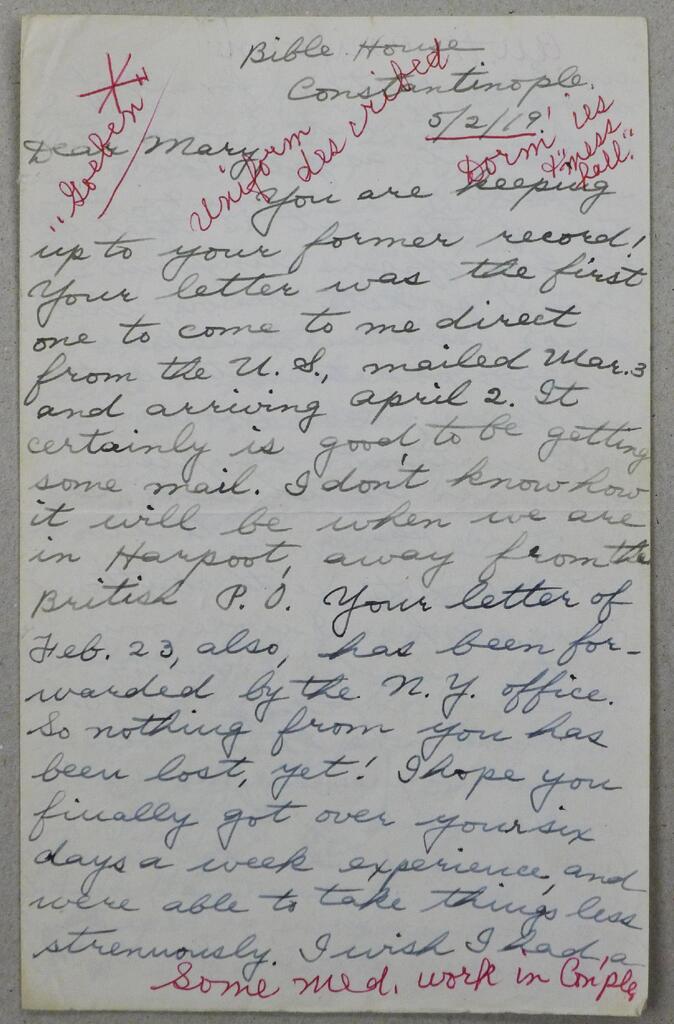 Bible House
Constantinople.
5/2/19!
"Goeben"
Uniform
described
Dorm'ies
& "mess
hall."
Dear Mary,
You are keeping
up to your former record!
Your letter was the first
one to come to me direct
from the U.S., mailed Mar. 3
and arriving April 2. It
certainly is good, to be getting
some mail. I don't know how
it will be when we are
in Harpoot, away from the
British P.O. Your letter of
Feb. 23, also, has been for-
warded by the N.Y. office.
So nothing from you has
been lost, yet! I hope you
finally got over your six
days a week experience, and
were able to take things less
strenuously. I wish I had, a
Some med. work in Con'ple